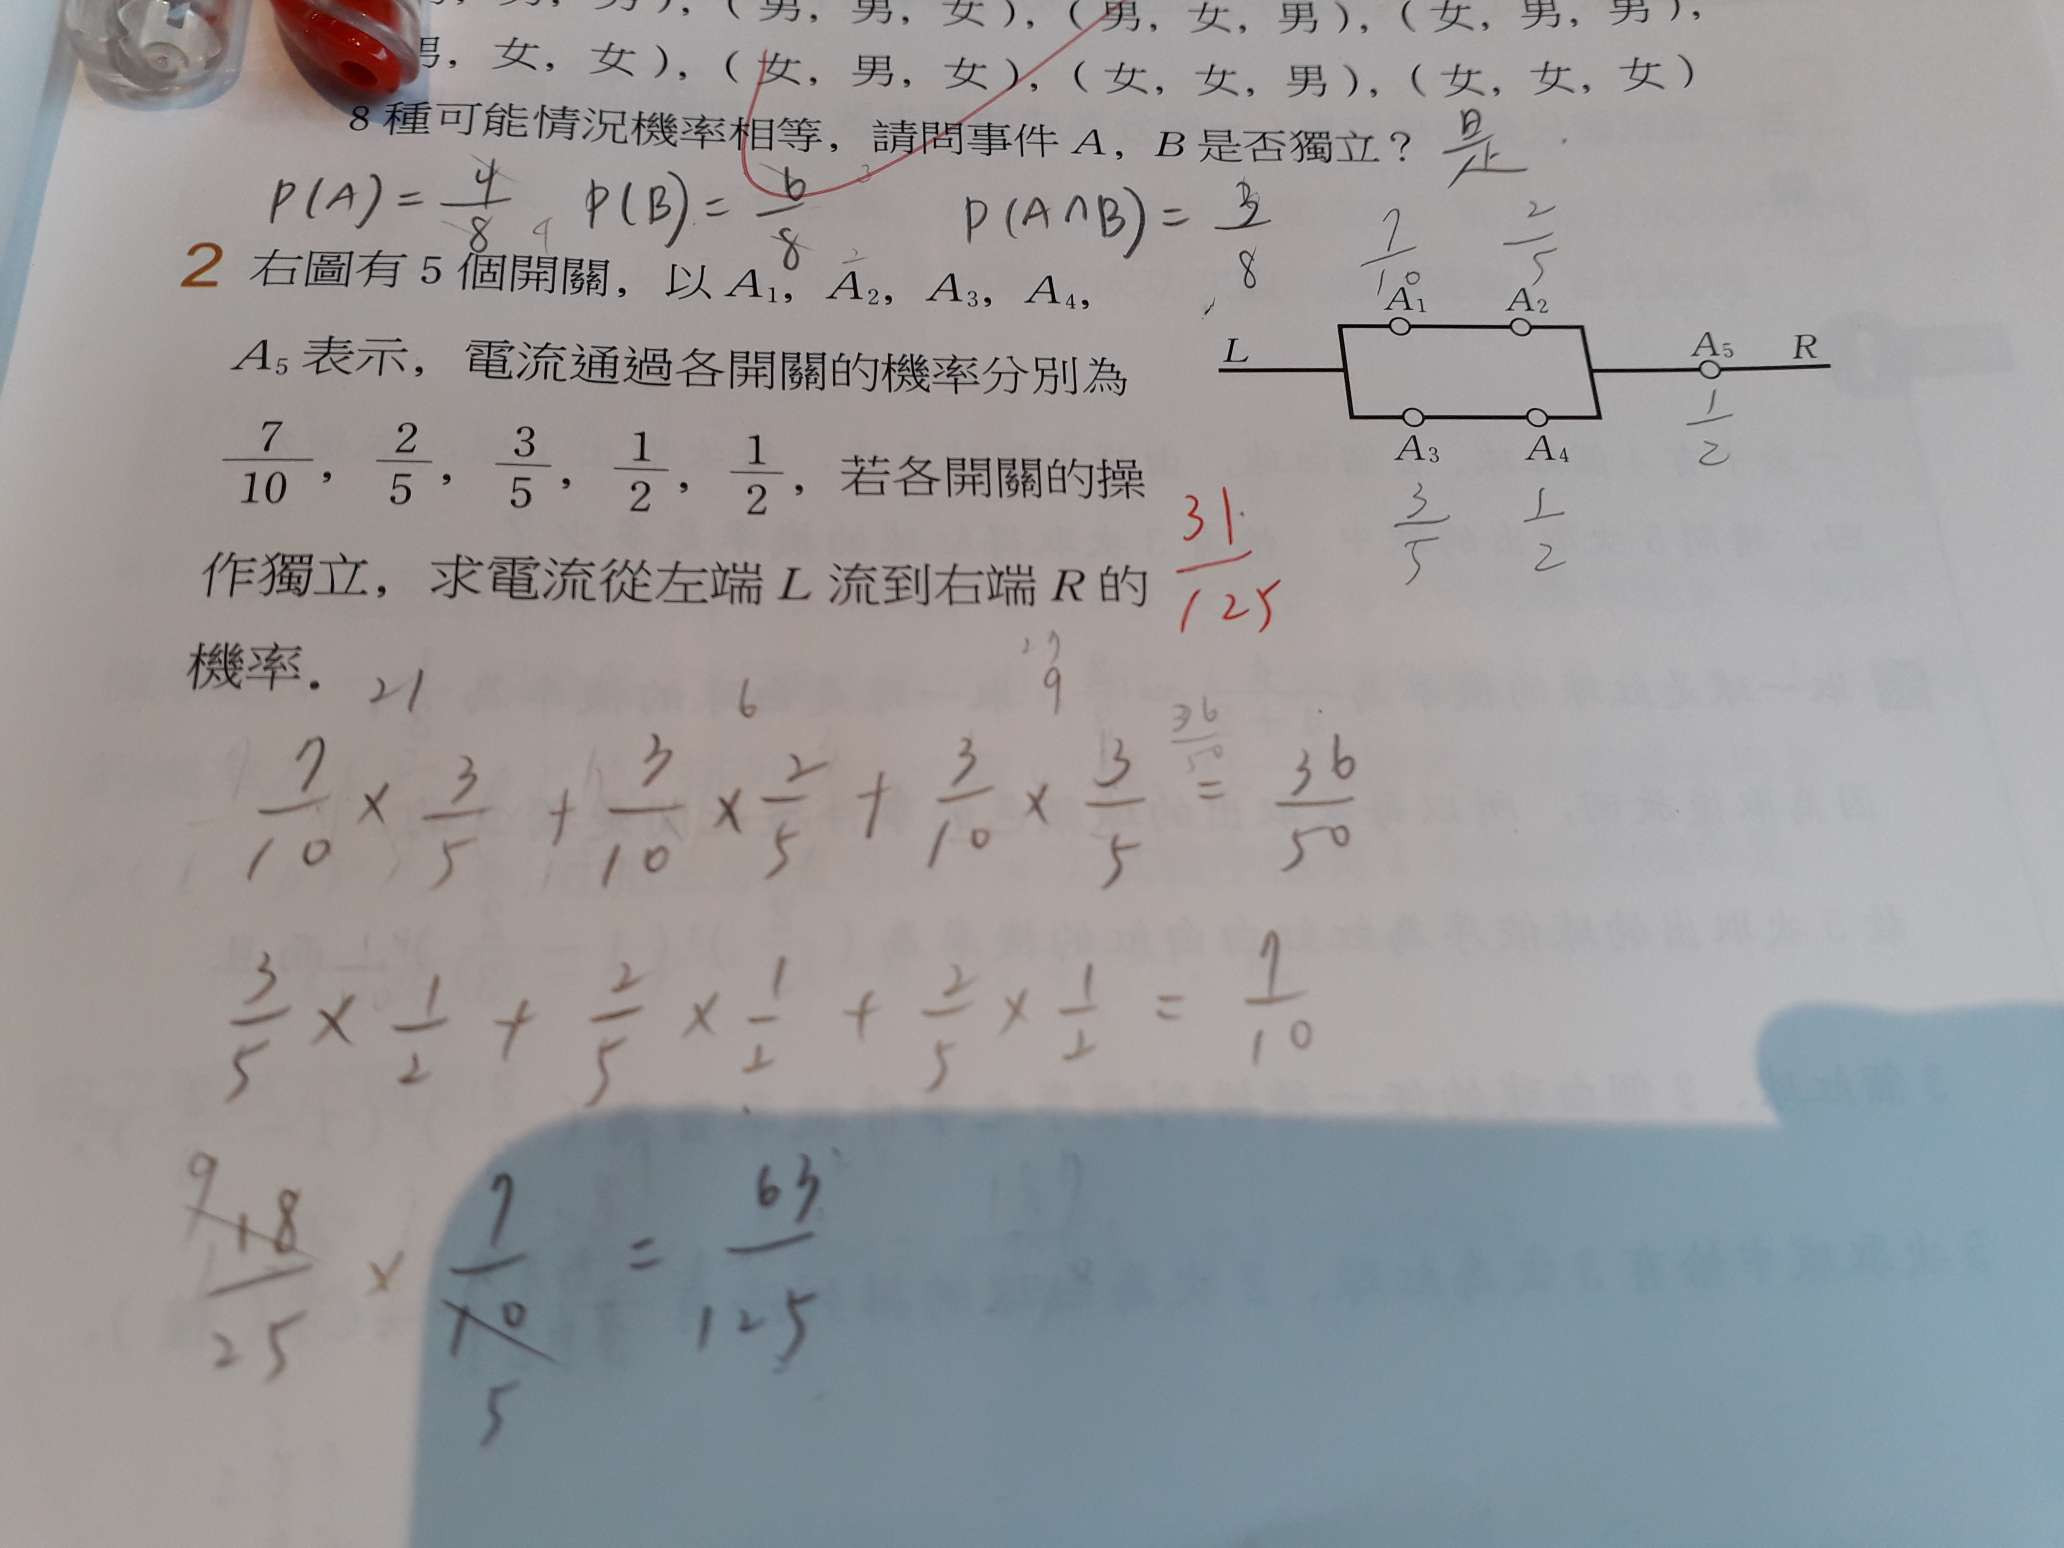 男, 男, 女), (男, 女, 男), (女, 男, 男),
男, 女, 女), (女, 男, 女), (女, 女, 男), (女, 女, 女)
8 種可能情況機率相等, 請問事件 A, B 是否獨立? 是
P(A) = 4/8 P(B) = 6/8 P(A∩B) = 3/8
2 右圖有 5 個開關, 以 A₁, A₂, A₃, A₄,
A₅ 表示, 電流通過各開關的機率分別為
7/10, 2/5, 3/5, 1/2, 1/2, 若各開關的操
作獨立, 求電流從左端 L 流到右端 R 的
機率.
7/10 2/5
A₁ A₂
L A₅ R
1/2
A₃ A₄
3/5 1/2
31/125
21 6 9
36/50
7/10 × 3/5 + 3/10 × 2/5 + 3/10 × 3/5 = 36/50
3/5 × 1/2 + 2/5 × 1/2 + 2/5 × 1/2 = 7/10
9
18/25 × 7/10 = 63/125
5